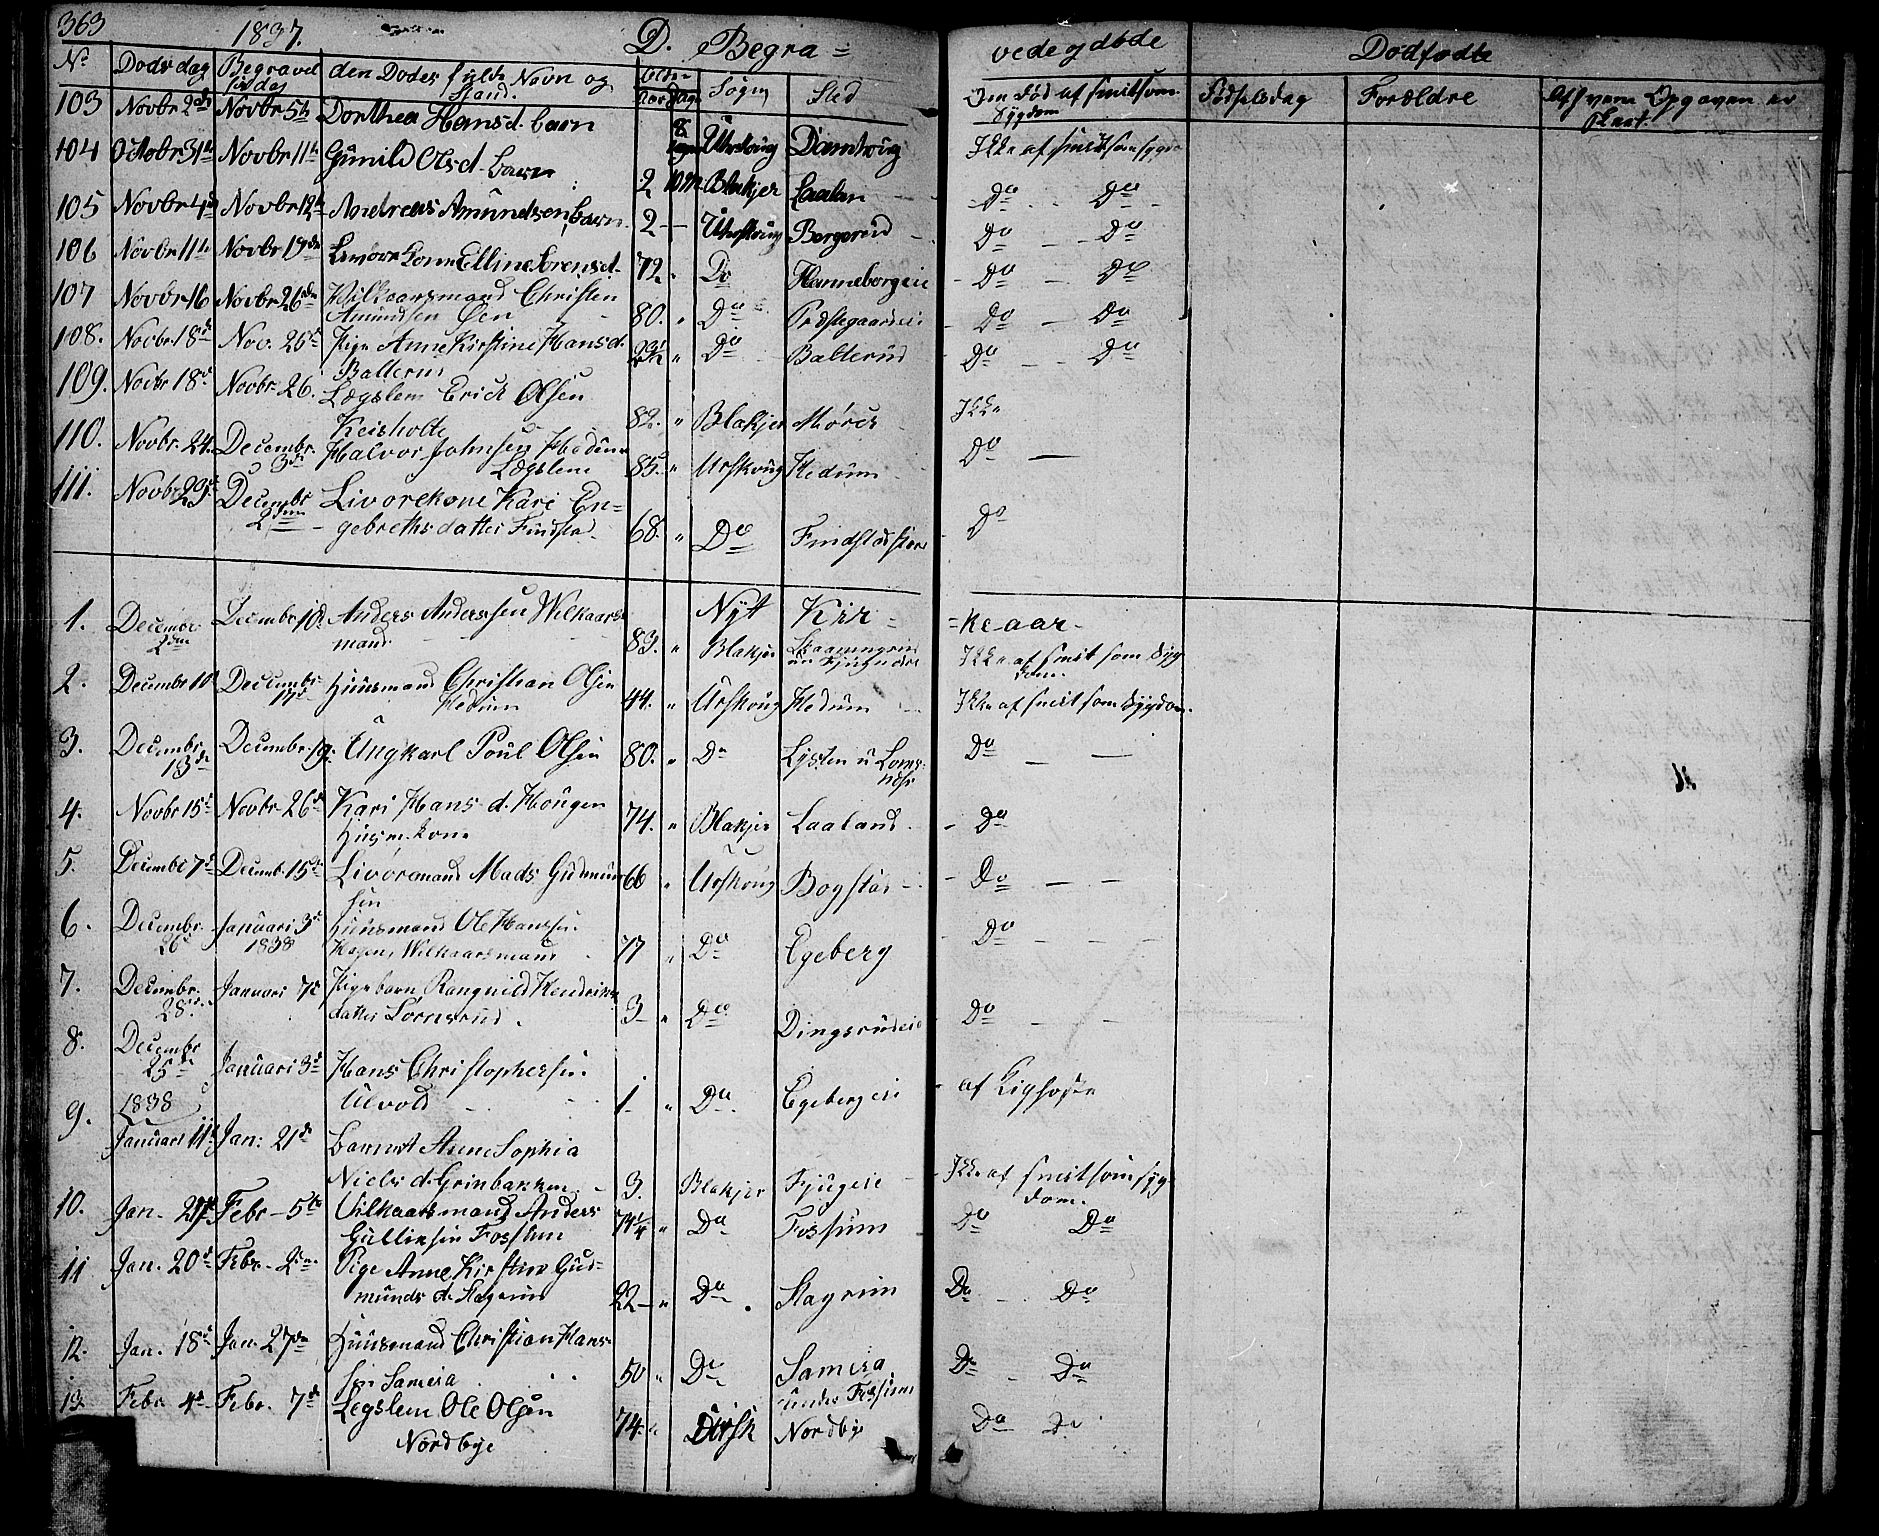 363 1837. D. Begra= vede og døde Dødfødte
No Døds dag Begravel sesdag den Dødes fulde Navn og Stand. Alder Aar Dage Sogn Sted Om Død af smitsom Sygdom Fødselsdag Forældre Af hvem Opgaven er
103 Novbr 2den Novbr 5te Dorthea Hansd. barn 8 Dage Urskoug Ikke af smitsom sygd.
104 Octobr 31te Novbr 11te Gunild Olsd. barn 2 Blakjer Laalan Do Do
105 Novbr 4de Novbr 12te Andreas Amundsen barn 2 — Urskoug Bergerud Do — Do
106 Novbr 11te Novbr 19de Elline Sorensd. 72 " Do Hanneborgeie Do — Do
107 Novbr 16 Novbr 26de Vilkaarsmand Christen
Amundsen Øen 80. " Do Præstegaardseie Do — Do
108. Novbr. 18de Nov. 26de Pige Anne Kirstine Hansd.
Ballerud 23½ " Do Ballerud Do — Do
109. Novbr 18de Novbr. 26. Lægslem Erick Olsen
82. " Blakjer Ikke
110. Novbr. 24. Decembr. 3de Halvor Johnsen Hedum
Lægslem 85. " Urskoug Hedum Do —
111. Novbr. 29de Decembr 2den Livørekone Kari En=
gebrethsdatter Findsta. 68. " Do Findstad Do
Nyt Kir= =keaar.
1. Decembr 2den Decembr 10. Anders Anderssen Wilkaars
mand 83. " Blakjer Ikke af smitsom Syg
dom.
2. Decembr 10 Decembr. 17de Huusmand Christian Olsen
Hedum 44. " Urskoug Hedum Ikke af smitsom Sygdom.
3. Decembr 13de Decembr 19. Ungkarl Poul Olsen 80. " Do Lysten u Loms=
næss Do — —
4. Novbr 15de Novbr. 26de Kari Hans d. Hougen
Husm. kone 74. " Blakjer Laaland. Do
5. Decembr 7de Decembr 15de Livøremand Mads Gudmund
sen 66 " Urskoug Bogstad Do — —
6. Decembr. 26de Januari 3de
1838 Huusmand Ole Hanssen.
Hagen, Wilkaarsmand 77 " Do Egeberg Do
7. Decembr. 28de Januari 7de Pigebarn Rangnild Hendriks
datter Lörnsrud. 3 " Do Dingsrudeie Do
8. Decembr 25de Januari 3de Hans Christophersen
Ulvold 1 " Do Egebergeie af Kighoste
9. 1838
Januari 11te Jan: 21de Barnet Anne Sophia
Niels d. Grinbakken 3. Blakjer Fjugeie Ikke af smitsom syg
dom.
10. Jan. 27de Febr. 5te Vilkaarsmand Anders
Gulliksen Fossum 74¼ " Do Fossum Do Do
11 Jan. 20de Febr. 2den Pige Anne Kirstine Gud=
munds d. Slagrum 22 " Do Slagrum Do Do
12. Jan. 18de Jan. 27de Huusmand Christian Hans=
sen Sameia 50 " Do Sameia
under Fossum Do Do
13 Febr. 4de Febr. 7de Legslem Ole Olsen
Nordbye 74. " Ursk Nordbye Do Do